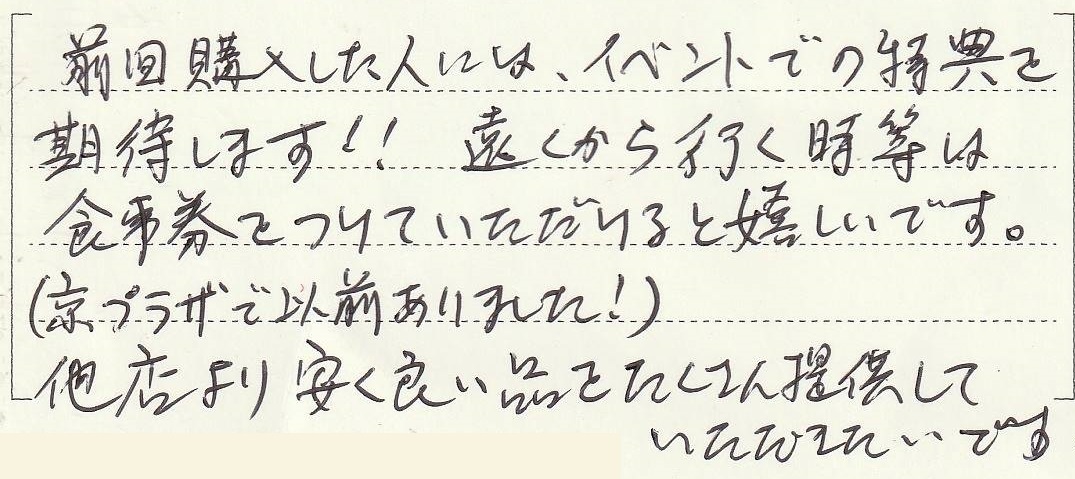 前回購入した人には、イベントでの特典を
期待します!! 遠くから行く時等は
食事券をつけていただけると嬉しいです。
(京プラザで以前ありました!)
他店より安く良い品をたくさん提供して
いただきたいです